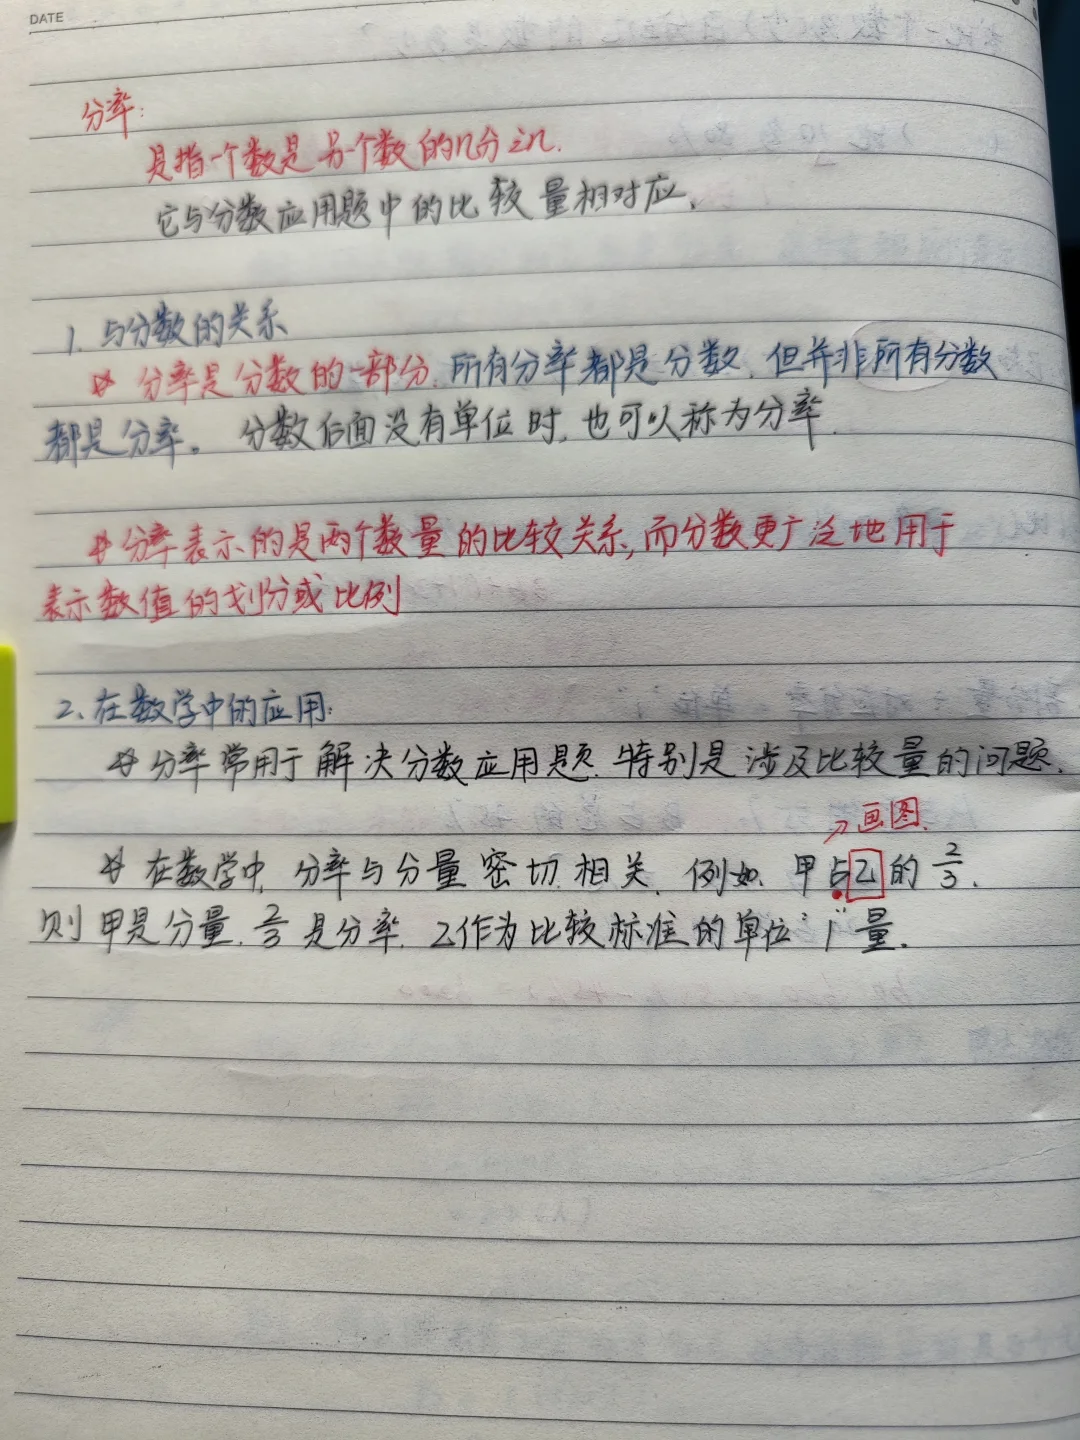 DATE
分率:
是指一个数是另一个数的几分之几.
它与分数应用题中的比较量相对应.
1. 与分数的关系
分率是分数的一部分.所有分率都是分数,但并非所有分数
都是分率。分数后面没有单位时,也可以称为分率.
分率表示的是两个数量的比较关系,而分数更广泛地用于
表示数值的划分或比例
2、在数学中的应用:
分率常用于解决分数应用题.特别是涉及比较量的问题.
→画图.
在数学中,分率与分量密切相关.例如、甲占乙的2/3.
则甲是分量.2/3是分率.乙作为比较标准的单位"1"量.